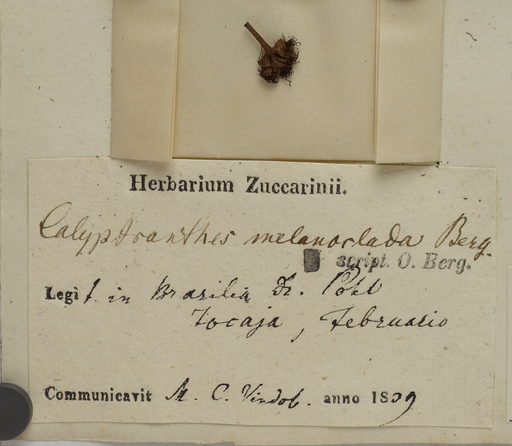 Herbarium Zuccarinii.
Calyptranthes melanoclada Berg.
script. O. Berg.
Legit. in Brasilia Dr. Pohl
Tocaja, Februario
Communicavit M. C. Vindob. anno 1839